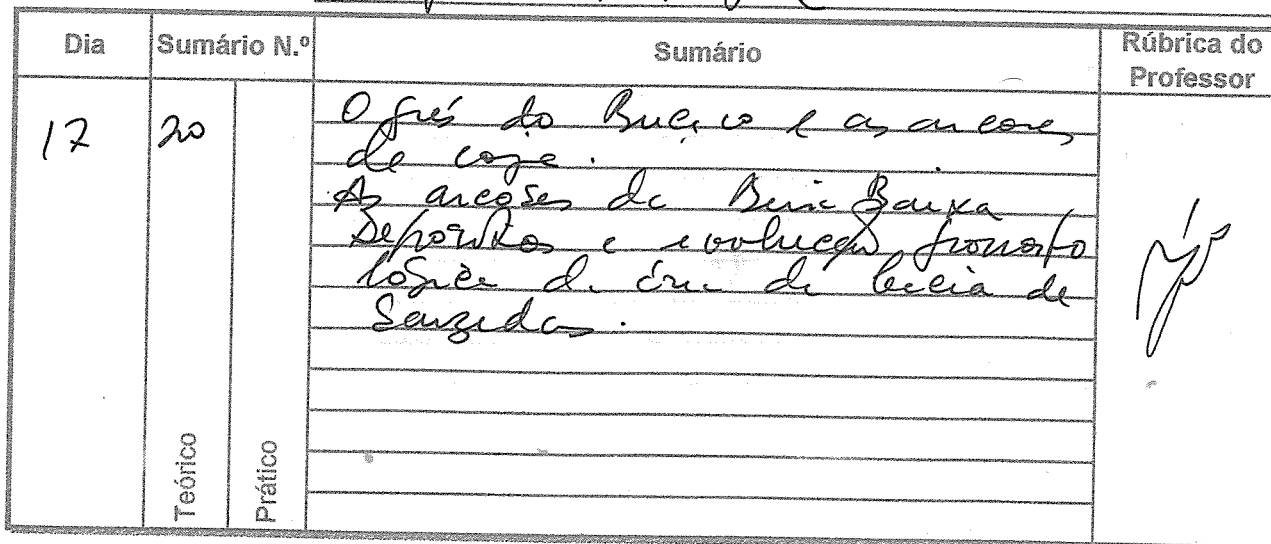 Dia Sumário N.º Sumário Rúbrica do Professor
17 20
O grés do Buçaco e as arcoses
de coja.
As arcoses da Beira Baixa
Depósitos e evolução geomorfo
lógica da área da bacia de
Sarzedas.
Teórico Prático